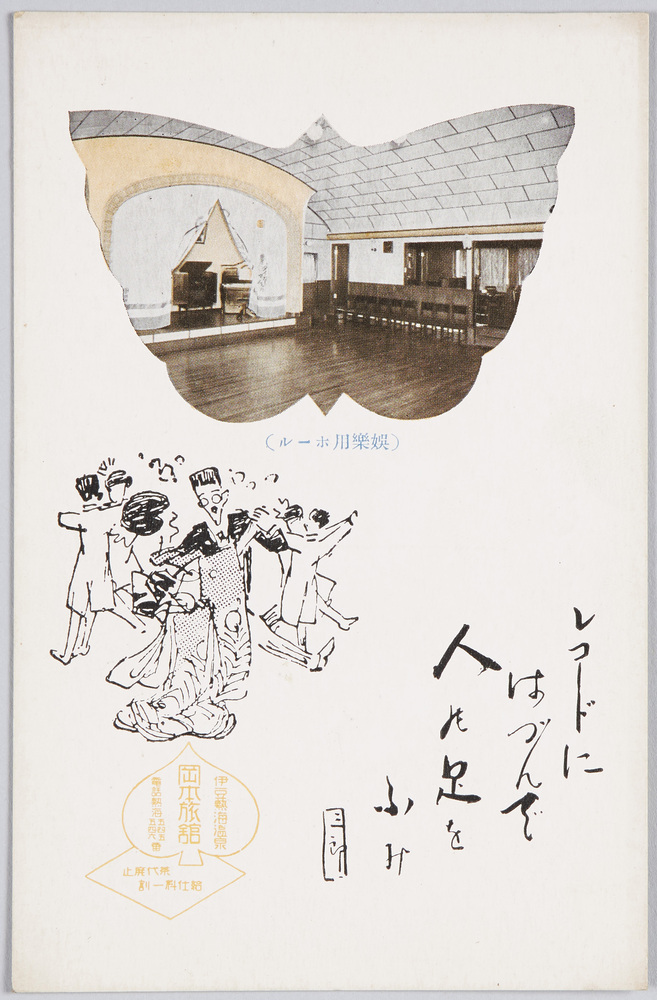 （娯樂用ホール）
レコードに
はづんで
人の足を
ふみ
三郎
伊豆熱海温泉
岡本旅舘
電話熱海 五四五 五四六 番
茶代廃止
給仕料一割